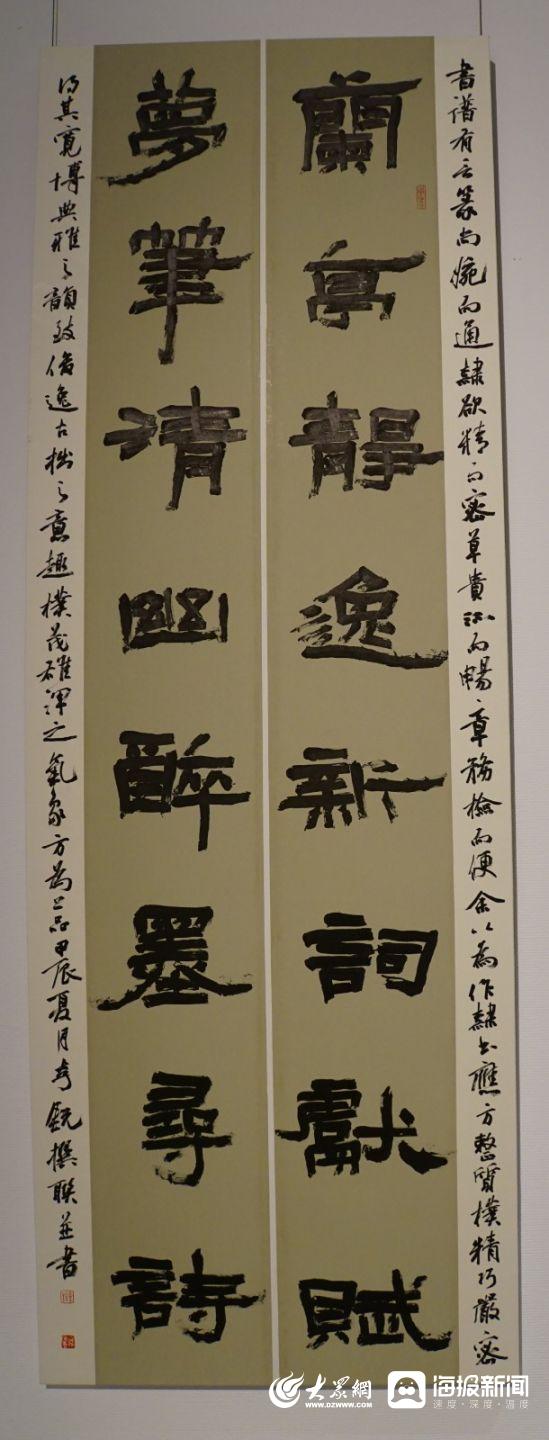 書譜有云篆尚婉而通隸欲精而密草貴流而暢章務檢而便余以為作隸書應方整質樸精巧嚴密
蘭亭靜逸新詞獻賦
夢筆清幽醉墨尋詩
得其寬博典雅之韻致俊逸古拙之意趣樸茂雄渾之氣象方為上品甲辰夏月 銳撰聯並書
大眾網
www.dzwww.com
海报新闻
速度·深度·温度